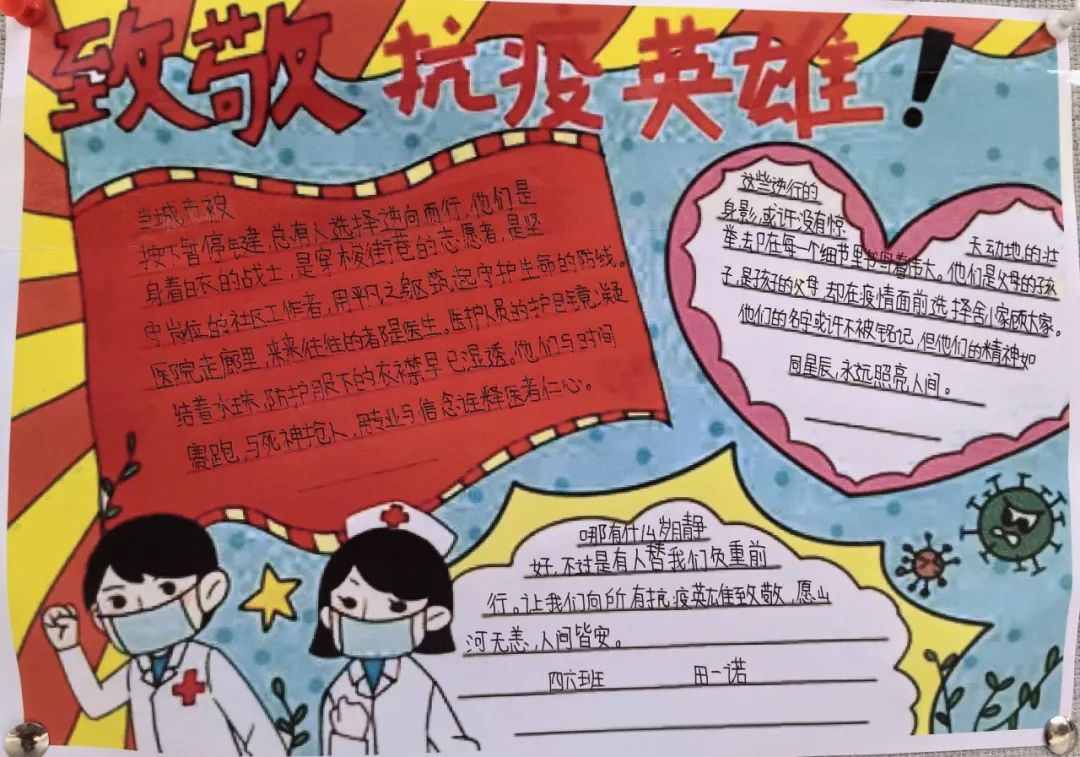 致敬抗疫英雄！
当城市被
按下暂停键，总有人选择逆向而行，他们是
身着白衣的战士，是穿梭街巷的志愿者，是坚
守岗位的社区工作者，用平凡之躯筑起守护生命的防线。
医院走廊里，来来往往的者都是医生。医护人员的护目镜凝
结着水珠，防护服下的衣襟早已湿透。他们与时间
赛跑，与死神抢人，用专业与信念诠释医者仁心。
这些逆行的
身影，或许没有惊
天动地的壮
举，却在每一个细节里书写着伟大。他们是父母的孩
子，是孩子的父母，却在疫情面前选择舍小家顾大家。
他们的名字或许不被铭记，但他们的精神如
同星辰，永远照亮人间。
哪有什么岁月静
好，不过是有人替我们负重前
行。让我们向所有抗疫英雄致敬，愿山
河无恙，人间皆安。
四六班 田一诺